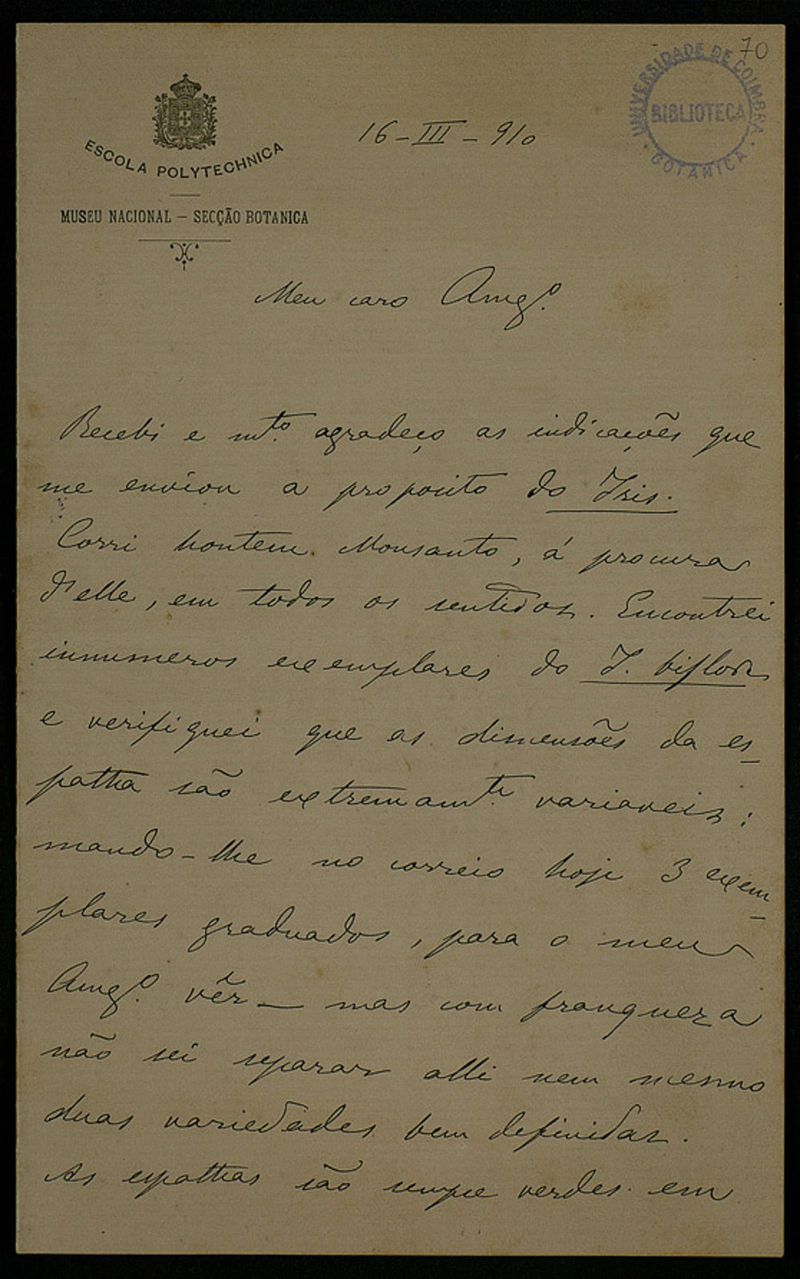 70
UNIVERSIDADE DE COIMBRA
BIBLIOTECA
BOTANICA
ESCOLA POLYTECHNICA
16-III-910
MUSEU NACIONAL — SECÇÃO BOTANICA
Meu caro Amg.º
Recebi e mt.º agradeço as indicações que
me enviou a proposito do Iris.
Corri hontem Monsanto, á procura
d'elle, em todos os sentidos. Encontrei
innumeros exemplares do I. biflora
e verifiquei que as dimensões da es-
patha são extremamte. variaveis:
mando-lhe no correio hoje 3 exem-
plares graduados, para o meu
Amg.º vêr — mas com franqueza
não sei separar alli nem mesmo
duas variedades bem definidas.
As espathas são sempre verdes em